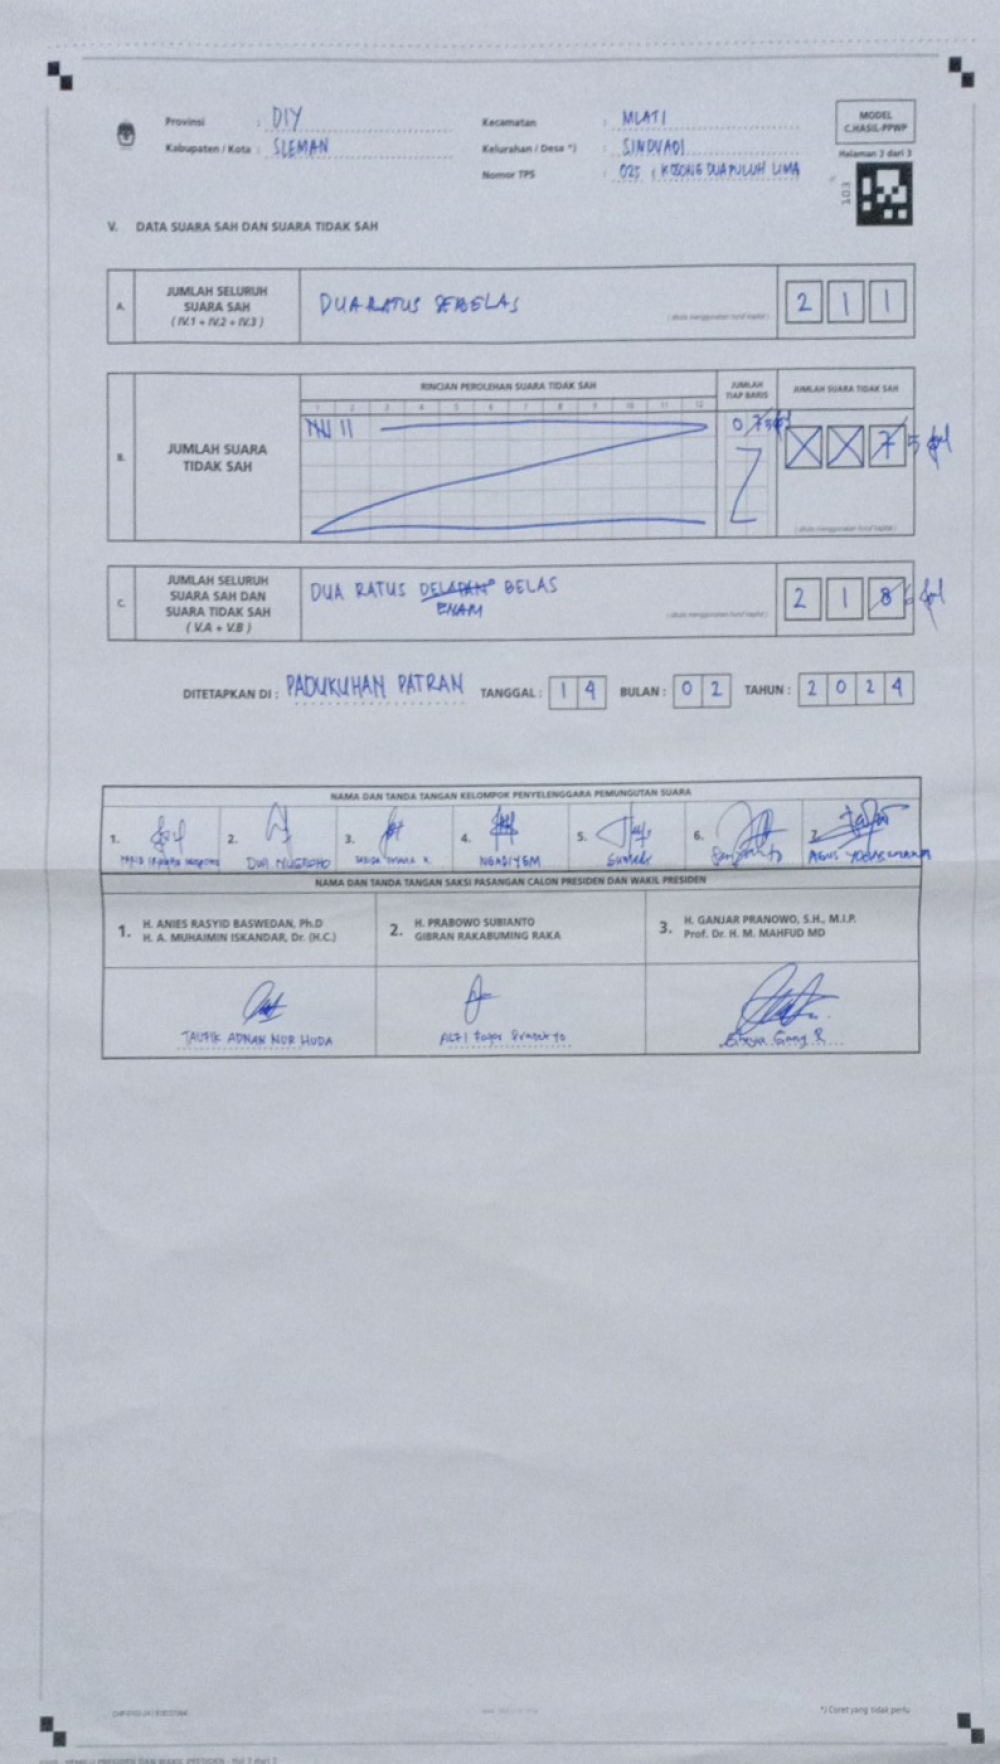 Provinsi : DIY
Kabupaten / Kota : SLEMAN
Kecamatan : MLATI
Kelurahan / Desa *) : SINDUADI
Nomor TPS : 025 ( KOSONG DUA PULUH LIMA
MODEL
C.HASIL-PPWP
Halaman 3 dari 3
103
V. DATA SUARA SAH DAN SUARA TIDAK SAH
A. JUMLAH SELURUH
SUARA SAH
( IV.1 + IV.2 + IV.3 )
DUA RATUS SEBELAS
2 1 1
B. JUMLAH SUARA
TIDAK SAH
RINCIAN PEROLEHAN SUARA TIDAK SAH
1 2 3 4 5 6 7 8 9 10 11 12
JUMLAH
TIAP BARIS
JUMLAH SUARA TIDAK SAH
0 7 5
X X 7 5
C. JUMLAH SELURUH
SUARA SAH DAN
SUARA TIDAK SAH
( V.A + V.B )
DUA RATUS DELAPAN BELAS
ENAM
2 1 8 6
DITETAPKAN DI : PADUKUHAN PATRAN TANGGAL : 1 4 BULAN : 0 2 TAHUN : 2 0 2 4
NAMA DAN TANDA TANGAN KELOMPOK PENYELENGGARA PEMUNGUTAN SUARA
1. 2. 3. 4. 5. 6. 7.
DWI NUGROHO
NGADIYEM
AGUS
NAMA DAN TANDA TANGAN SAKSI PASANGAN CALON PRESIDEN DAN WAKIL PRESIDEN
1. H. ANIES RASYID BASWEDAN, Ph.D
H. A. MUHAIMIN ISKANDAR, Dr. (H.C.)
2. H. PRABOWO SUBIANTO
GIBRAN RAKABUMING RAKA
3. H. GANJAR PRANOWO, S.H., M.I.P.
Prof. Dr. H. M. MAHFUD MD
TAUFIK ADNAN NUR HUDA
*) Coret yang tidak perlu